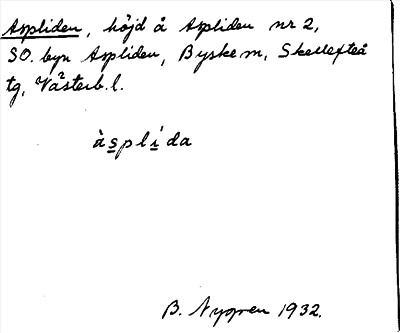 Aspliden, höjd å Aspliden nr 2,
SO. byn Aspliden, Byske m, Skellefteå
tg, Västerb. l.
àsplída
B. Nygren 1932.